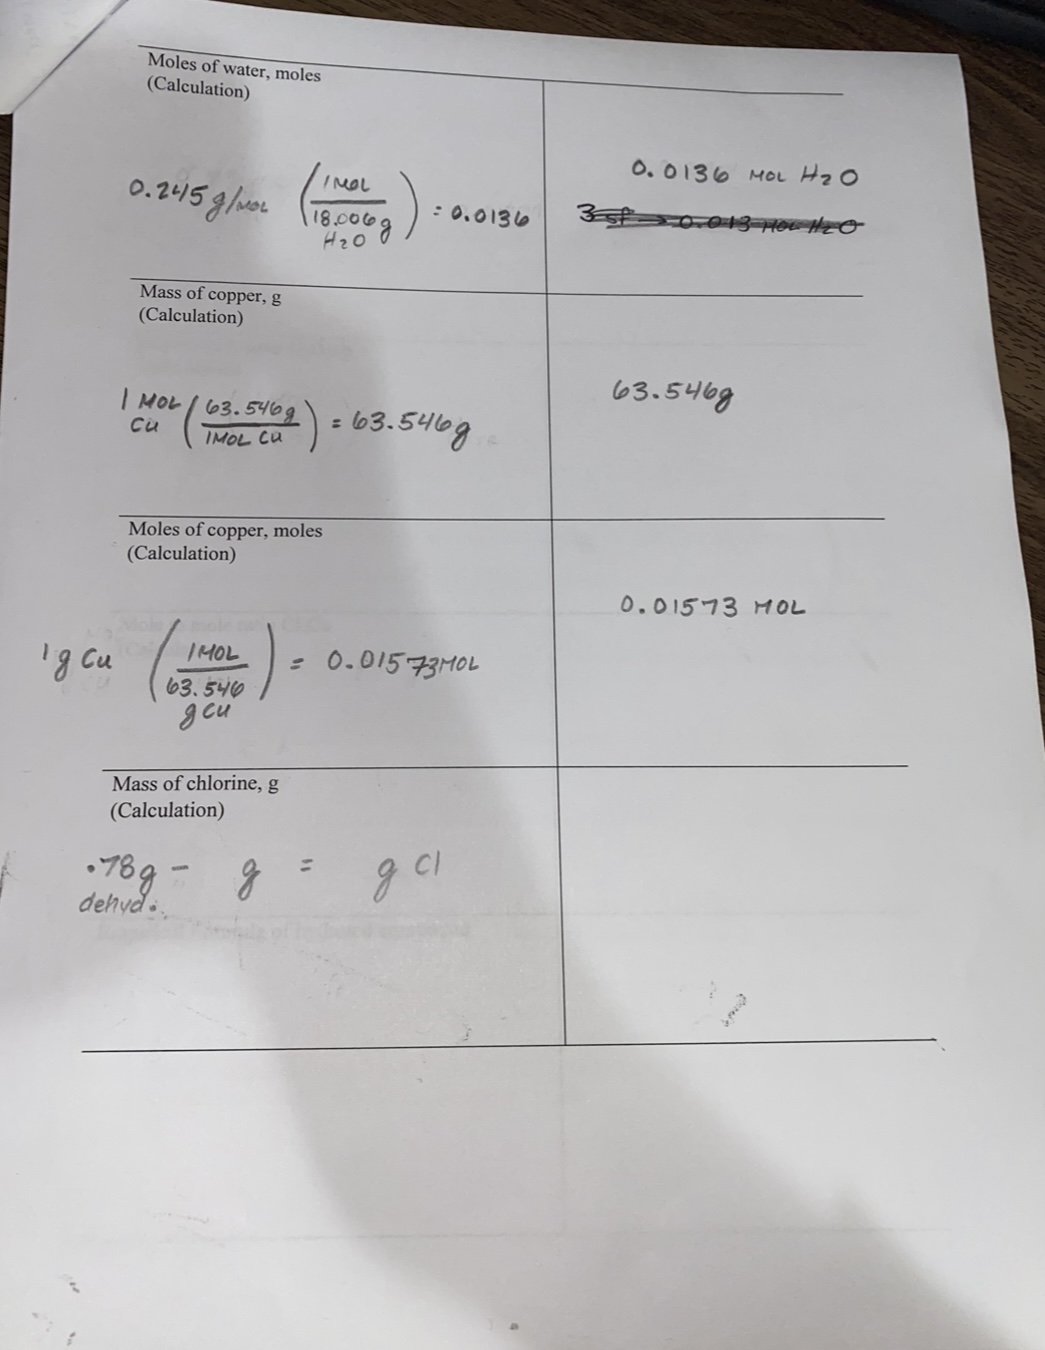 Moles of water, moles
(Calculation)
0.245 g/MOL (1 MOL / 18.006g H2O) = 0.0136
0.0136 MOL H2O
3 sf → 0.013 MOL H2O
Mass of copper, g
(Calculation)
1 MOL Cu (63.546g / 1MOL Cu) = 63.546g
63.546g
Moles of copper, moles
(Calculation)
1g Cu (1MOL / 63.546 g Cu) = 0.01573MOL
0.01573 MOL
Mass of chlorine, g
(Calculation)
.78g - g = g Cl
dehyd.